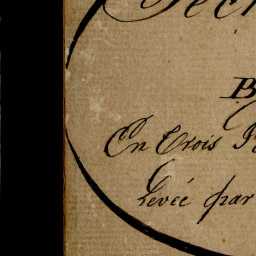 B
En Trois
Levée par